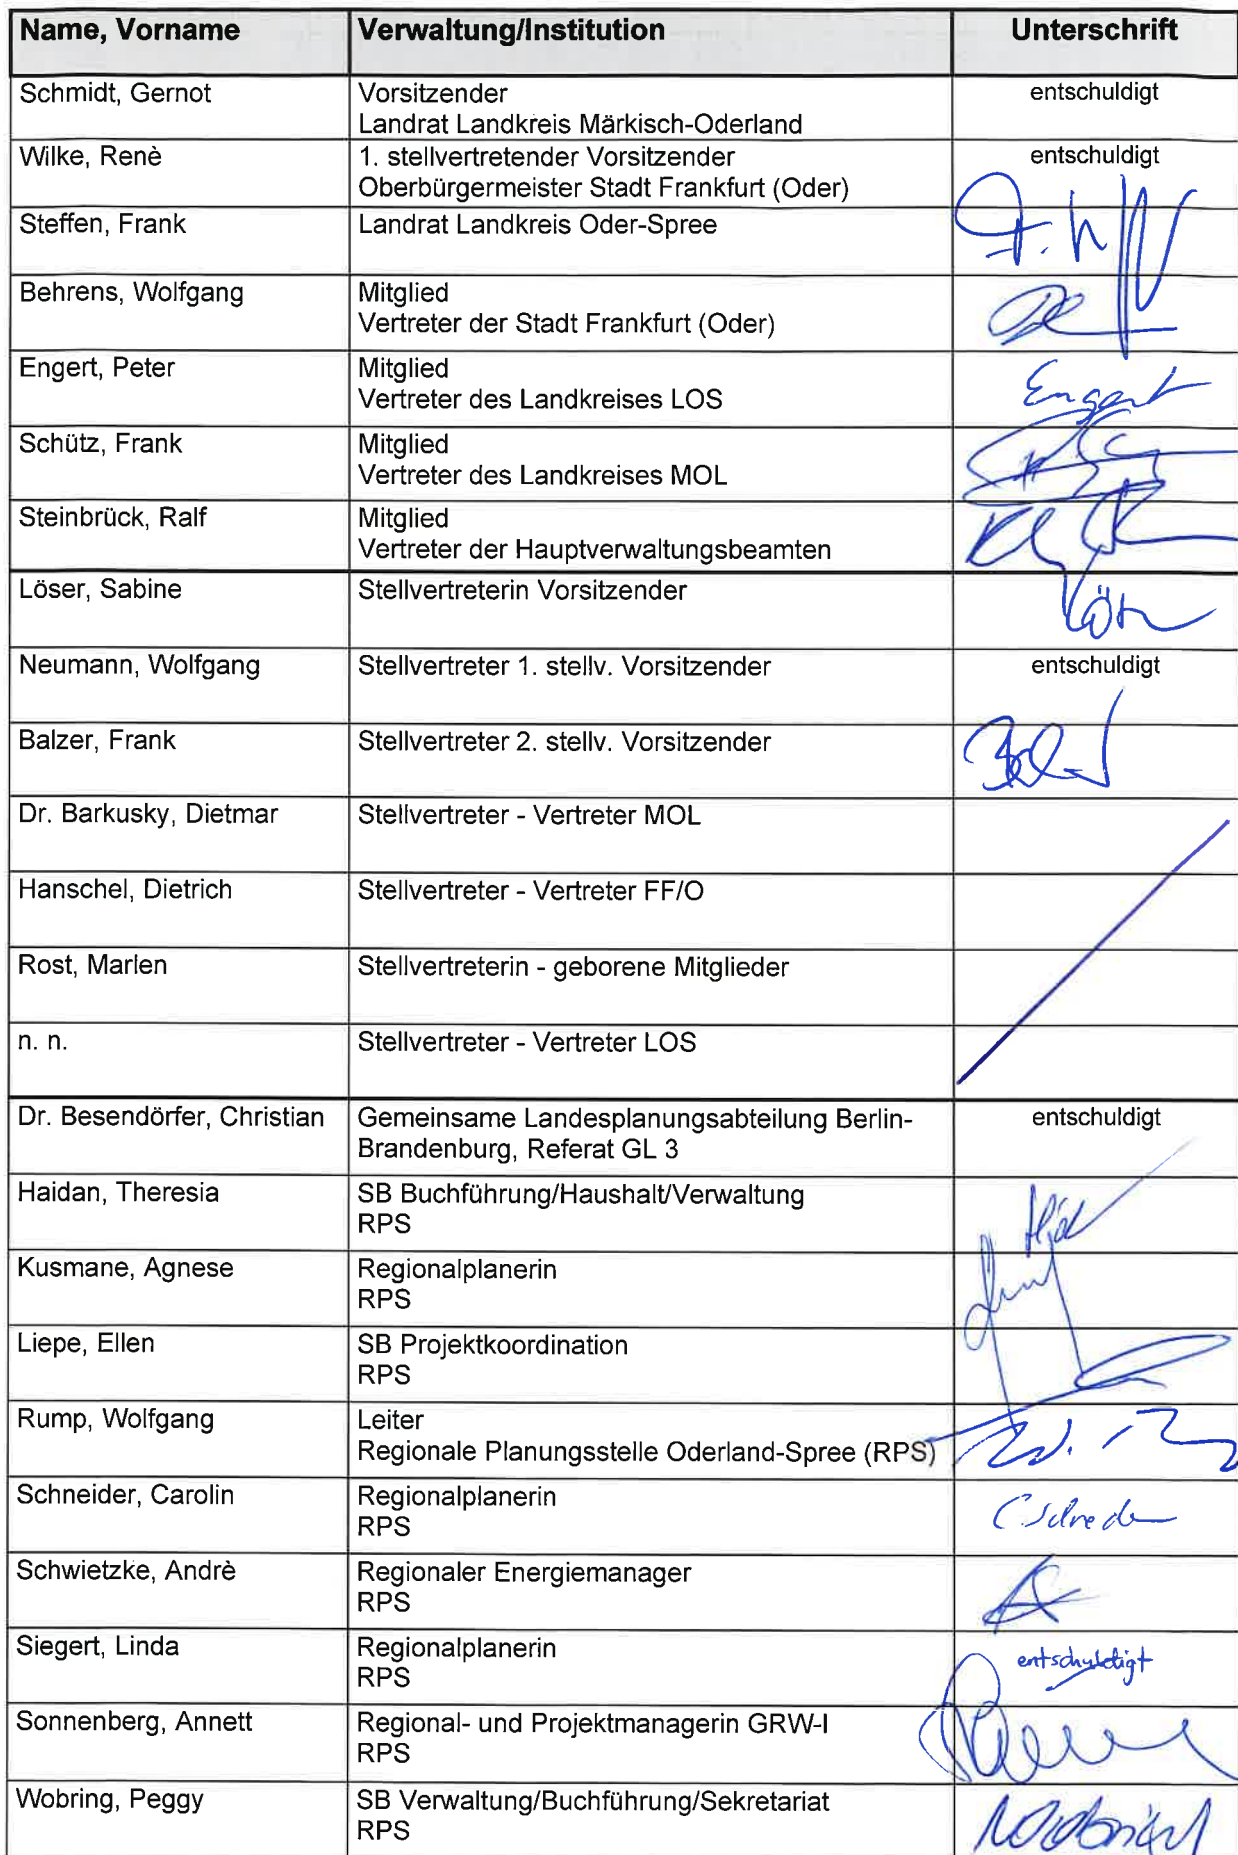 Name, Vorname Verwaltung/Institution Unterschrift
Schmidt, Gernot Vorsitzender entschuldigt
Landrat Landkreis Märkisch-Oderland
Wilke, Renè 1. stellvertretender Vorsitzender entschuldigt
Oberbürgermeister Stadt Frankfurt (Oder)
Steffen, Frank Landrat Landkreis Oder-Spree
Behrens, Wolfgang Mitglied
Vertreter der Stadt Frankfurt (Oder)
Engert, Peter Mitglied Engert
Vertreter des Landkreises LOS
Schütz, Frank Mitglied
Vertreter des Landkreises MOL
Steinbrück, Ralf Mitglied
Vertreter der Hauptverwaltungsbeamten
Löser, Sabine Stellvertreterin Vorsitzender
Neumann, Wolfgang Stellvertreter 1. stellv. Vorsitzender entschuldigt
Balzer, Frank Stellvertreter 2. stellv. Vorsitzender
Dr. Barkusky, Dietmar Stellvertreter - Vertreter MOL
Hanschel, Dietrich Stellvertreter - Vertreter FF/O
Rost, Marlen Stellvertreterin - geborene Mitglieder
n. n. Stellvertreter - Vertreter LOS
Dr. Besendörfer, Christian Gemeinsame Landesplanungsabteilung Berlin- entschuldigt
Brandenburg, Referat GL 3
Haidan, Theresia SB Buchführung/Haushalt/Verwaltung
RPS
Kusmane, Agnese Regionalplanerin
RPS
Liepe, Ellen SB Projektkoordination
RPS
Rump, Wolfgang Leiter
Regionale Planungsstelle Oderland-Spree (RPS)
Schneider, Carolin Regionalplanerin
RPS
Schwietzke, Andrè Regionaler Energiemanager
RPS
Siegert, Linda Regionalplanerin entschuldigt
RPS
Sonnenberg, Annett Regional- und Projektmanagerin GRW-I
RPS
Wobring, Peggy SB Verwaltung/Buchführung/Sekretariat
RPS